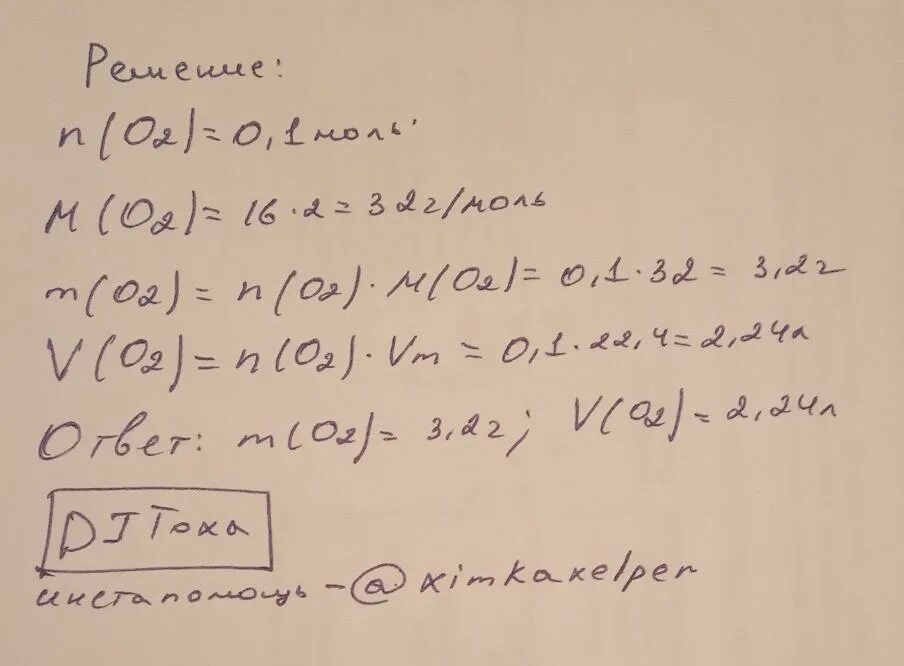 Решение:
n(O2)=0,1моль
M(O2)=16·2=32г/моль
m(O2)=n(O2)·M(O2)=0,1·32=3,2г
V(O2)=n(O2)·Vm=0,1·22,4=2,24л
Ответ: m(O2)=3,2г; V(O2)=2,24л
DJ Toxa
инстапомощь-@ximkaxelper